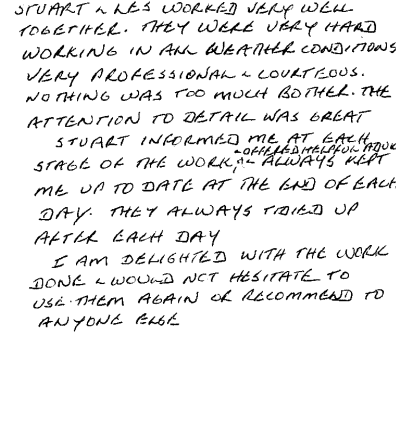 STUART & LES WORKED VERY WELL
TOGETHER. THEY WERE VERY HARD
WORKING IN ALL WEATHER CONDITIONS
VERY PROFESSIONAL & COURTEOUS.
NOTHING WAS TOO MUCH BOTHER. THE
ATTENTION TO DETAIL WAS GREAT
STUART INFORMED ME AT EACH
& OFFERED HELPFUL ADVICE
STAGE OF THE WORK, & ALWAYS KEPT
ME UP TO DATE AT THE END OF EACH
DAY. THEY ALWAYS TIDIED UP
AFTER EACH DAY
I AM DELIGHTED WITH THE WORK
DONE & WOULD NOT HESITATE TO
USE THEM AGAIN OR RECOMMEND TO
ANYONE ELSE